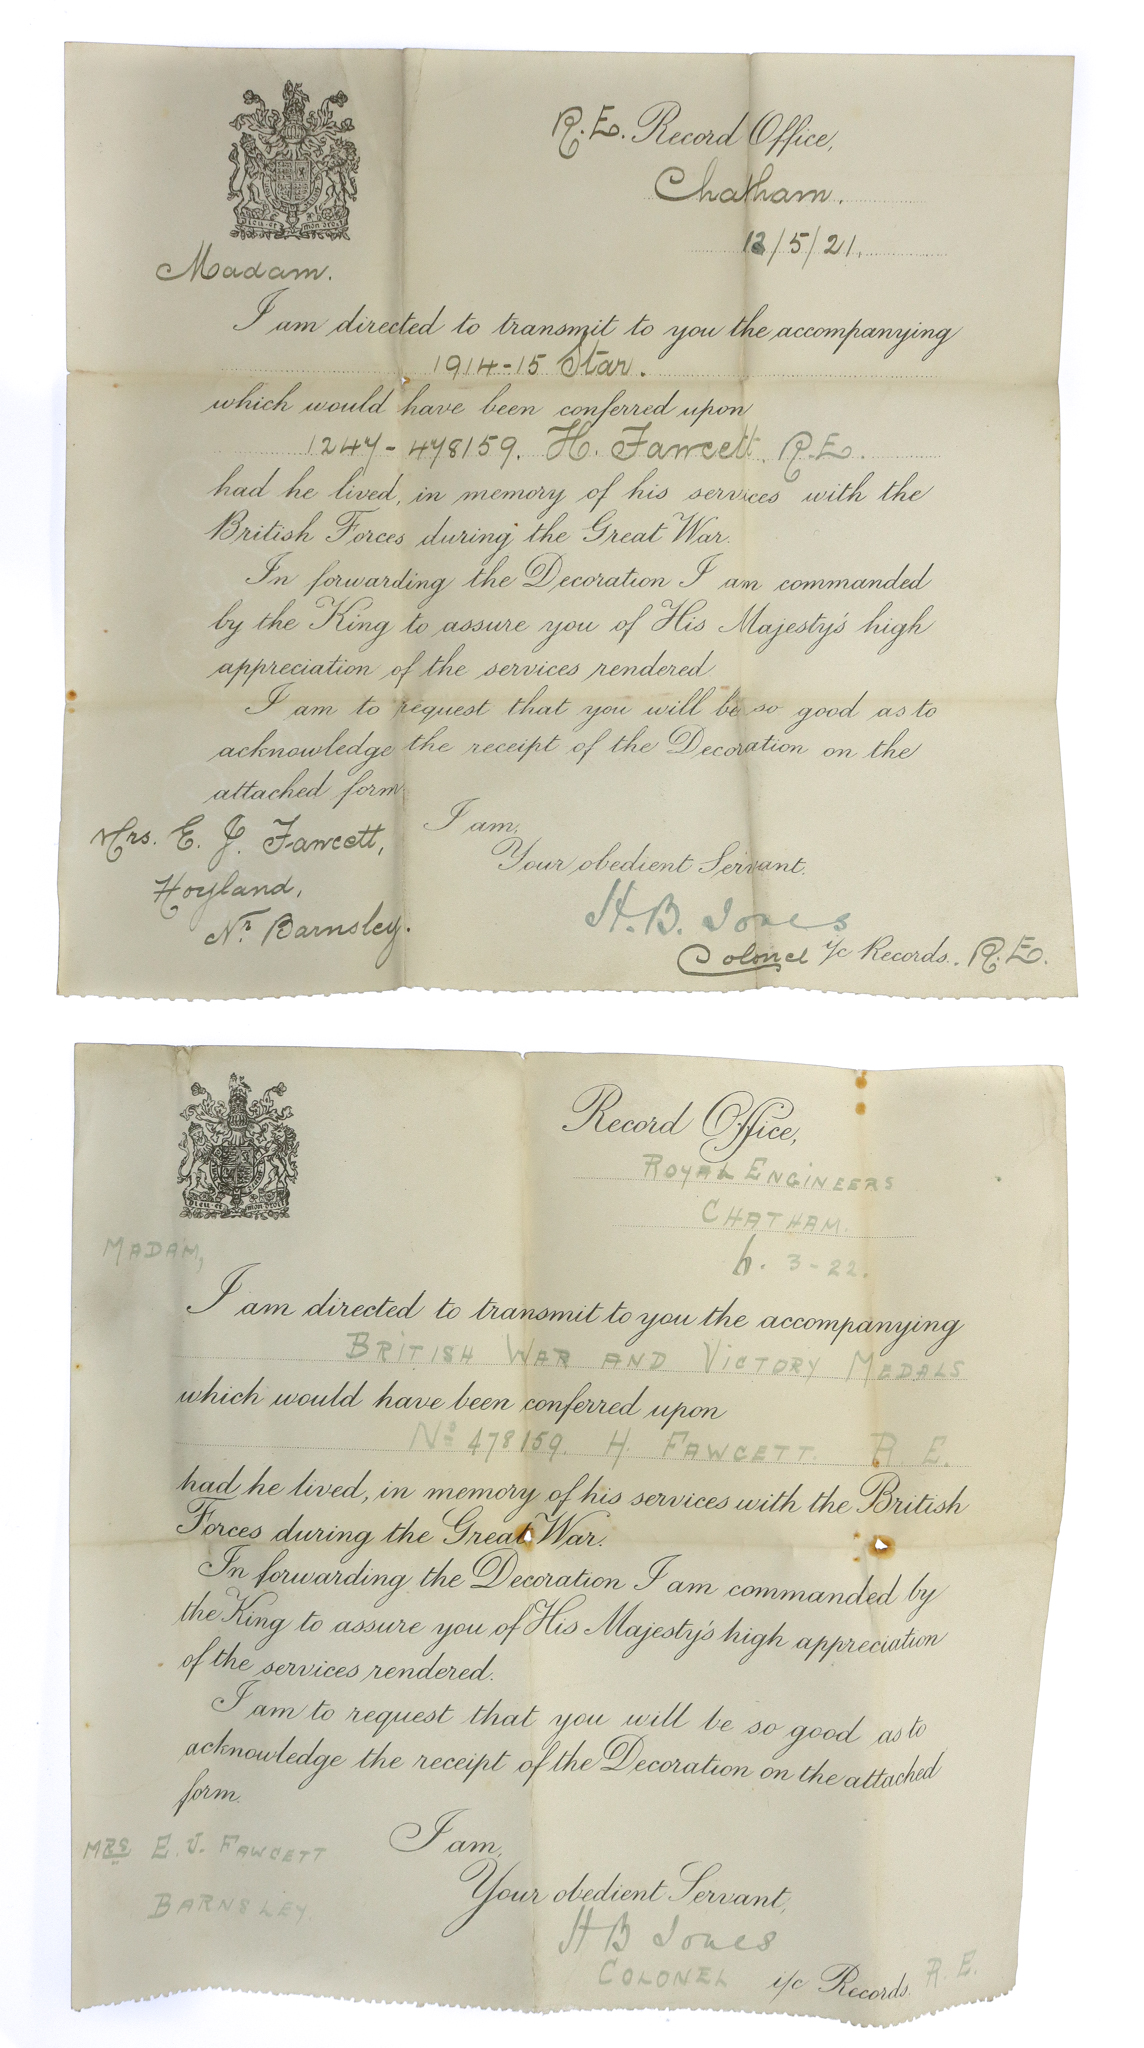 R.E. Record Office,
Chatham.
13/5/21.
Dieu et mon droit
Madam.
I am directed to transmit to you the accompanying
1914-15 Star.
which would have been conferred upon
1247 - 478159. H. Fawcett. R.E.
had he lived, in memory of his services with the
British Forces during the Great War.
In forwarding the Decoration I am commanded
by the King to assure you of His Majesty's high
appreciation of the services rendered.
I am to request that you will be so good as to
acknowledge the receipt of the Decoration on the
attached form.
I am,
Your obedient Servant.
Mrs. E. J. Fawcett,
Hoyland,
Nr. Barnsley.
H.B. Jones
Colonel i/c Records. R.E.
Record Office,
Royal Engineers
Chatham.
6. 3-22.
Dieu et mon droit
Madam,
I am directed to transmit to you the accompanying
British War and Victory Medals
which would have been conferred upon
No 478159. H. Fawcett. R.E.
had he lived, in memory of his services with the British
Forces during the Great War.
In forwarding the Decoration I am commanded by
the King to assure you of His Majesty's high appreciation
of the services rendered.
I am to request that you will be so good as to
acknowledge the receipt of the Decoration on the attached
form.
I am,
Your obedient Servant,
Mrs E. J. Fawcett
Barnsley.
H B Jones
Colonel i/c Records. R.E.